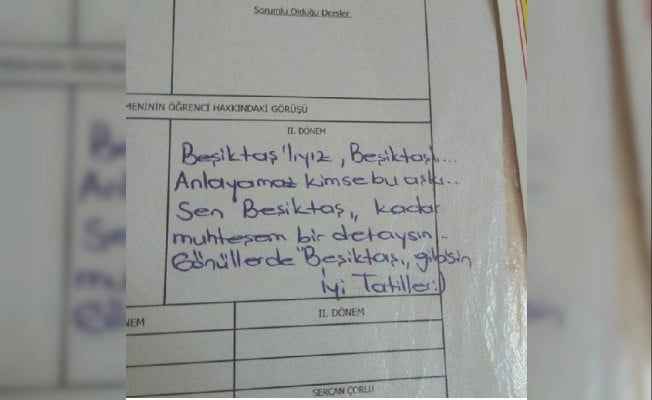 Sorumlu Olduğu Dersler
MENİNİN ÖĞRENCİ HAKKINDAKİ GÖRÜŞÜ
II. DÖNEM
Beşiktaş'lıyız, Beşiktaşlı...
Anlayamaz kimse bu aşkı..
Sen Beşiktaş,, kadar
muhteşem bir detaysın -
Gönüllerde "Beşiktaş,, gibisin
İyi Tatiller:)
NEM
II. DÖNEM
SERCAN ÇORLU